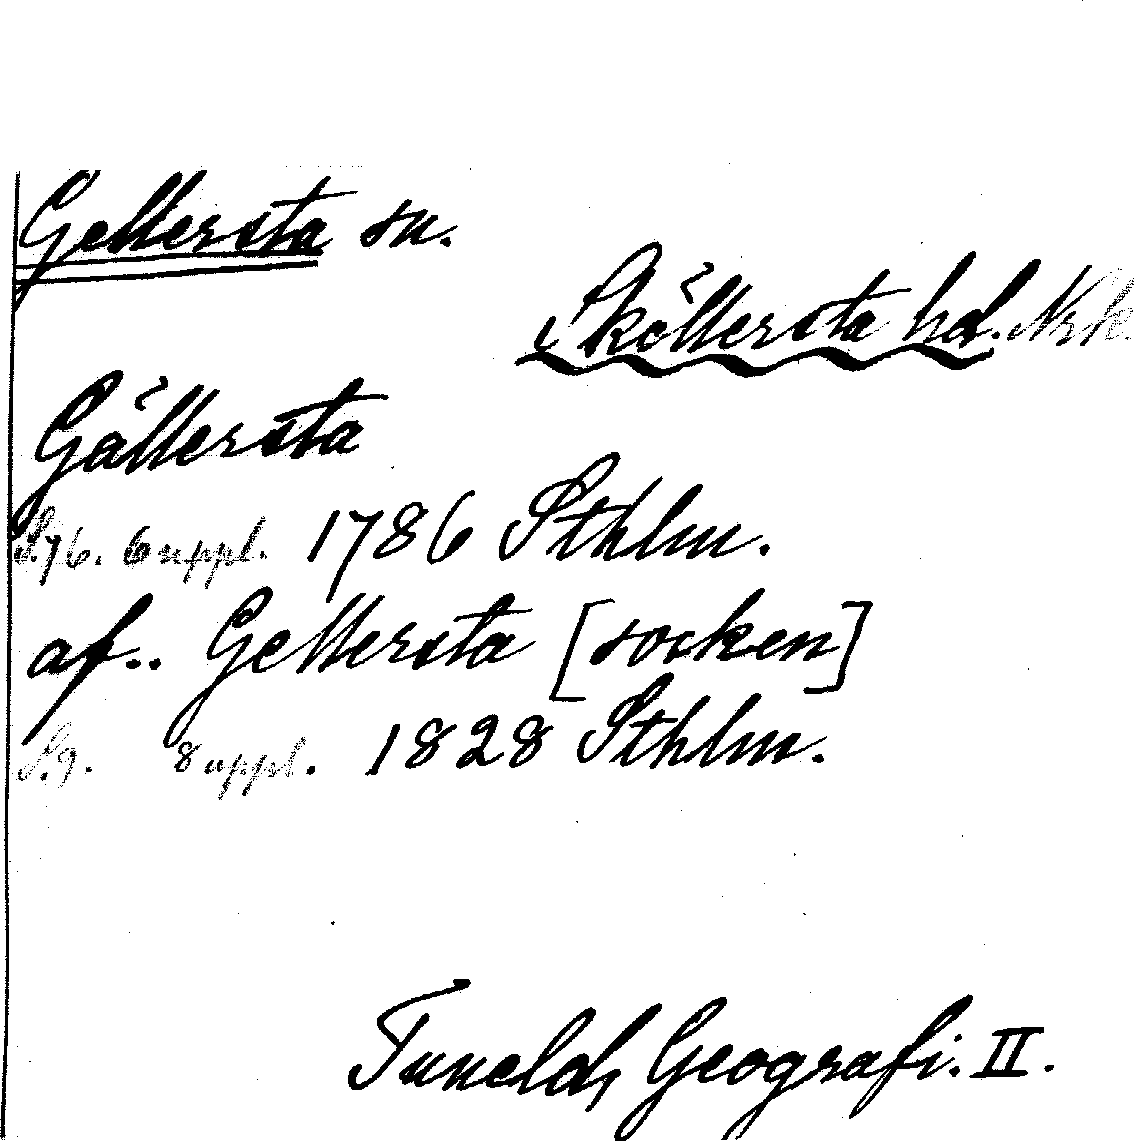 Gellersta sn.
Sköllersta hd. Nrk.
Gällersta
S. 76. 6 uppl. 1786 Sthlm.
af.. Gellersta [socken]
S. 9. 8 uppl. 1828 Sthlm.
Tunelds Geografi. II.